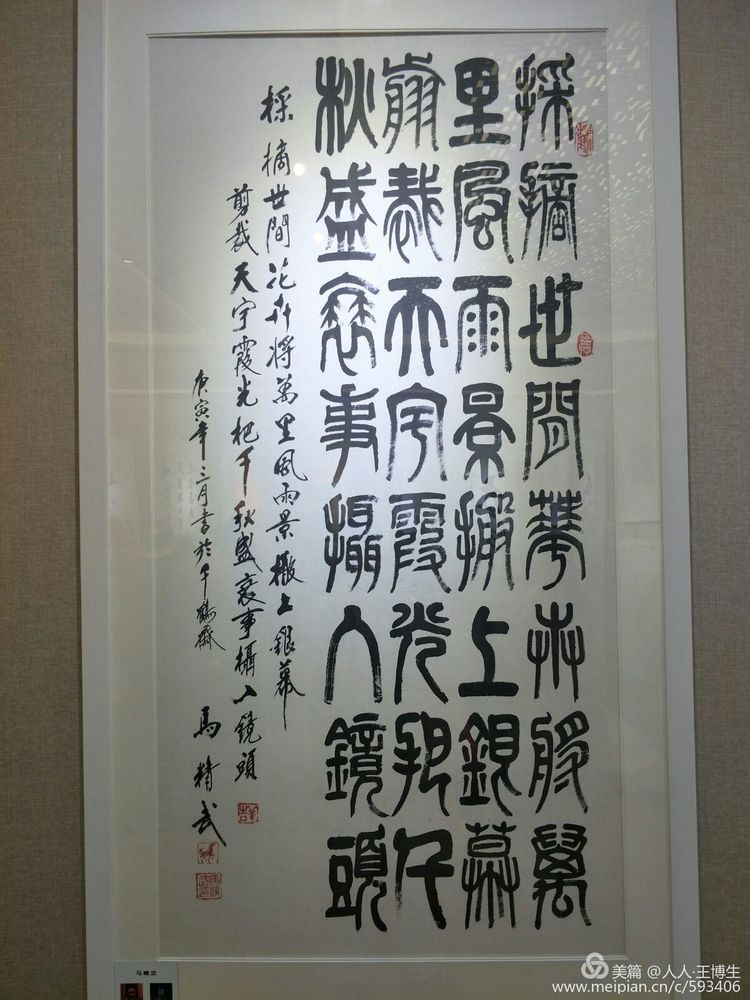 採摘世間華卉將萬
里風雨景搬上銀幕
剪裁天宇霞光把千
秋盛衰事攝入鏡頭
採摘世間花卉將萬里風雨景搬上銀幕
剪裁天宇霞光把千秋盛衰事攝入鏡頭
庚寅年三月書於鶴齋
馬精武
马精武
美篇 @人人·王博生
www.meipian.cn/c/593406